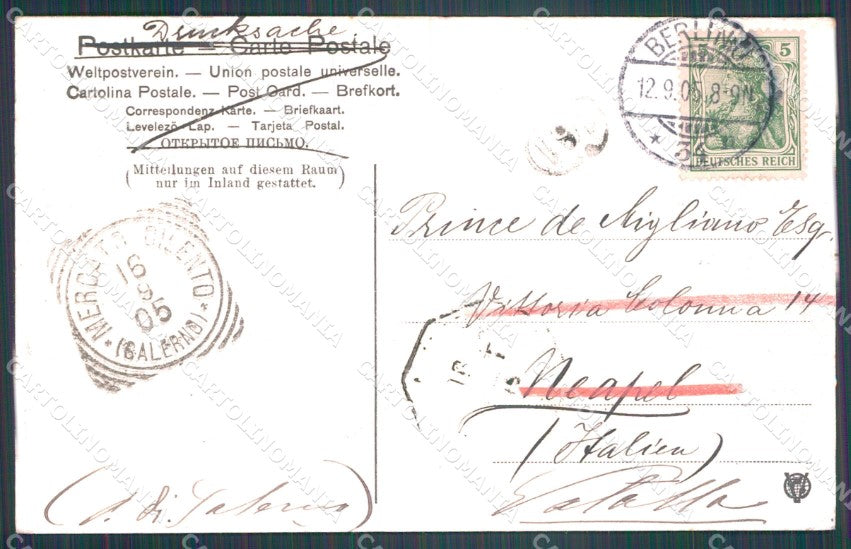 Drucksache
Postkarte — Carte Postale
Weltpostverein. — Union postale universelle.
Cartolina Postale. — Post Card. — Brefkort.
Correspondenz-Karte. — Briefkaart.
Levelező-Lap. — Tarjeta Postal.
ОТКРЫТОЕ ПИСЬМО.
(Mitteilungen auf diesem Raum
nur im Inland gestattet.)
BERLIN
12.9.05. 8-9N.
* 34
5
DEUTSCHES REICH
MERCATO CILENTO
16
9
05
* (SALERNO) *
Prince de Migliano Esq.
Vittoria Colonna 14
Neapel
(Italien)
CARTOLINOMANIA